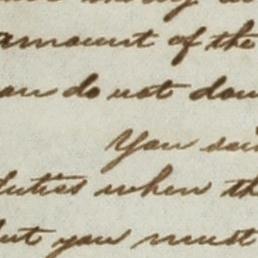 amount of the
do not
You
duties when th
but you must